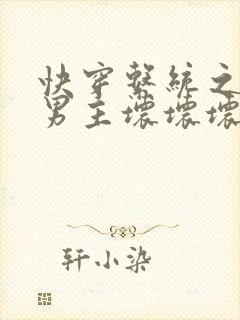 快穿系统之
男主坏坏坏
轩小染